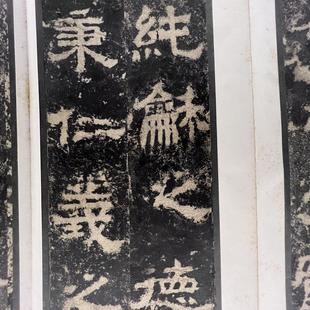 純龢之德
秉仁義之